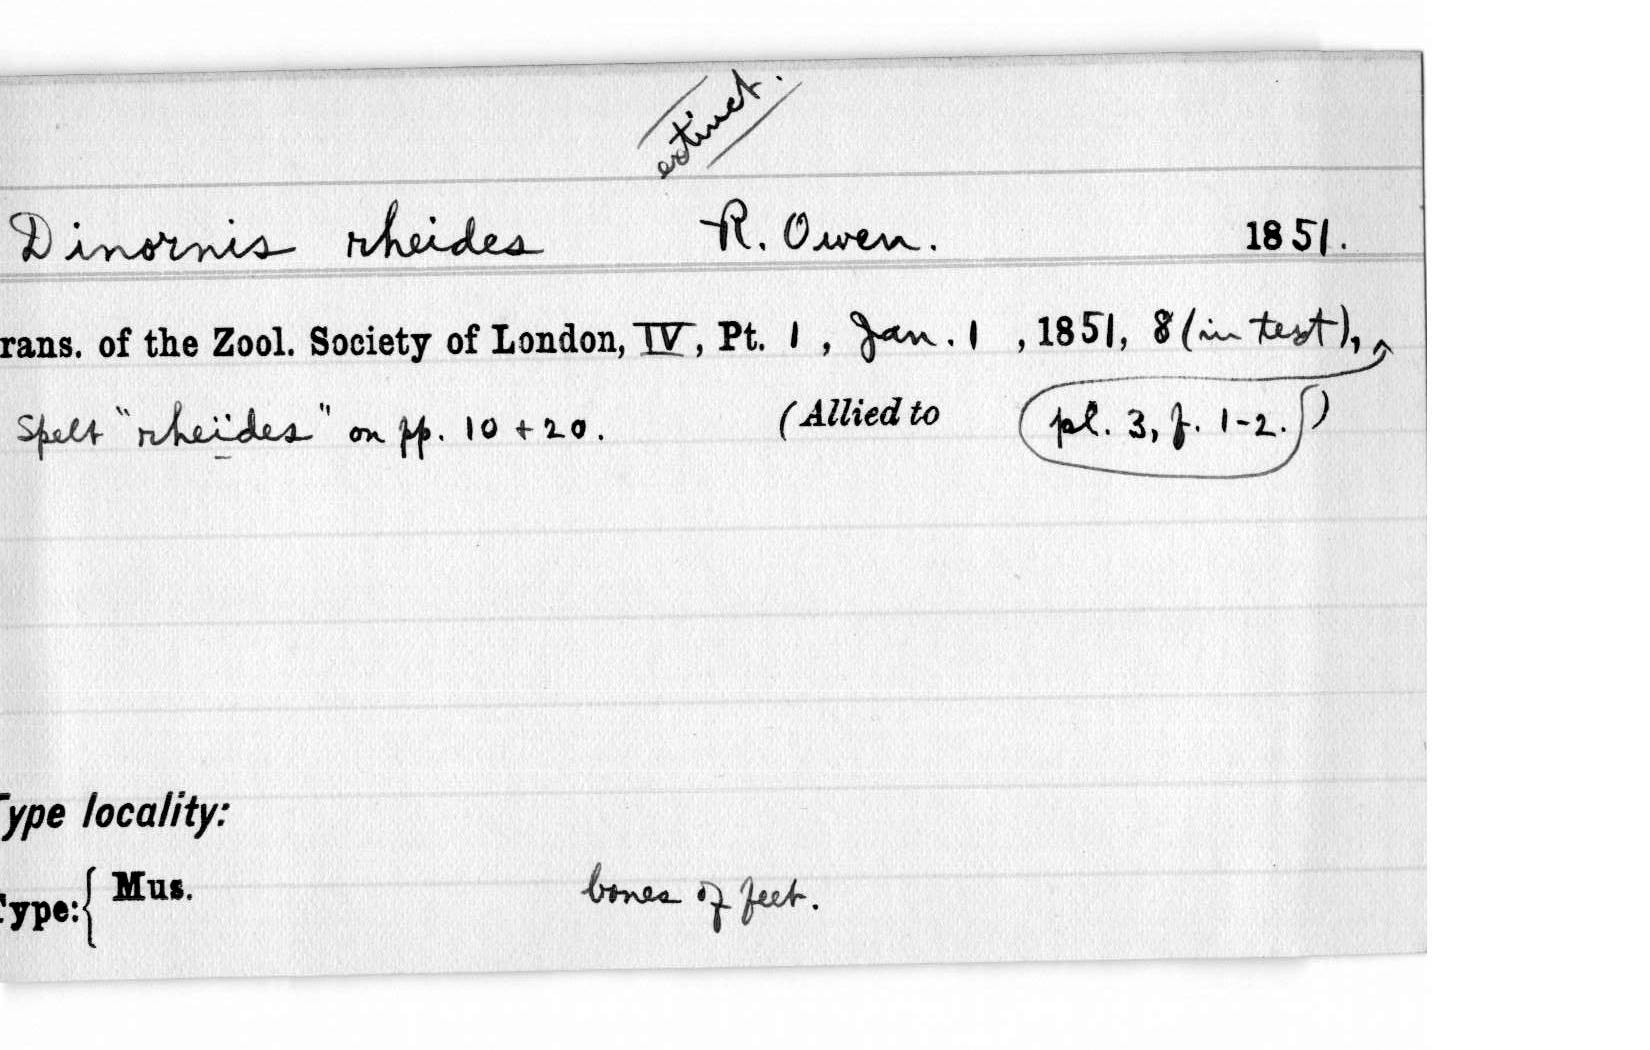 extinct.
Dinornis rheides R. Owen. 1851.
rans. of the Zool. Society of London, IV, Pt. 1, Jan. 1, 1851, 8 (in text),
Spelt "rheïdes" on pp. 10 + 20. (Allied to pl. 3, f. 1-2.)
Type locality:
Type: { Mus. bones of feet.